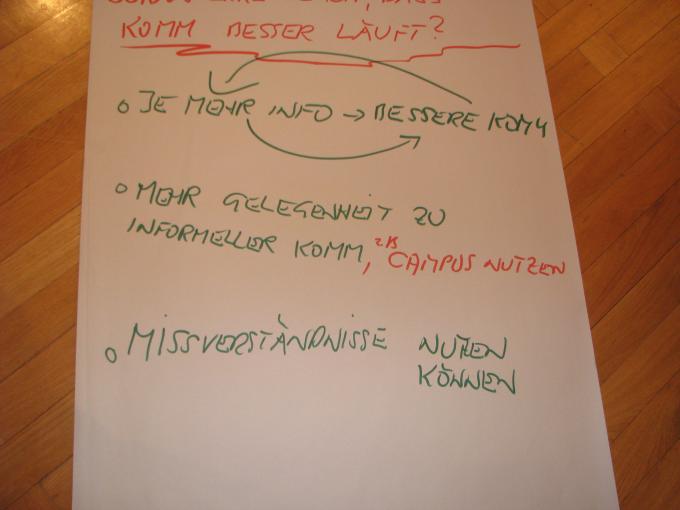 KOMM BESSER LÄUFT?
o JE MEHR INFO → BESSERE KOMM
o MEHR GELEGENHEIT ZU
INFORMELLER KOMM, ZB CAMPUS NUTZEN
o MISSVERSTÄNDNISSE NUTZEN
KÖNNEN